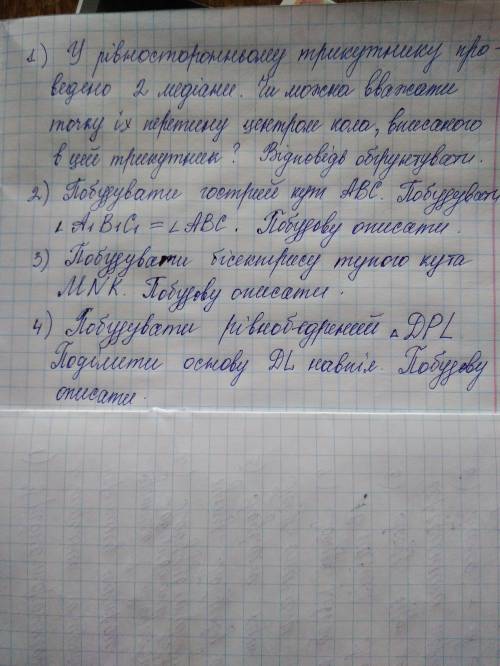 1) У рівносторонньому трикутнику про-
ведено 2 медіани. Чи можна вважати
точку їх перетину центром кола, вписаного
в цей трикутник? Відповідь обґрунтувати.
2) Побудувати гострий кут ABC. Побудувати
∠A₁B₁C₁ = ∠ABC. Побудову описати.
3) Побудувати бісектрису тупого кута
MNK. Побудову описати.
4) Побудувати рівнобедрений △DPL
Поділити основу DL навпіл. Побудову
описати.